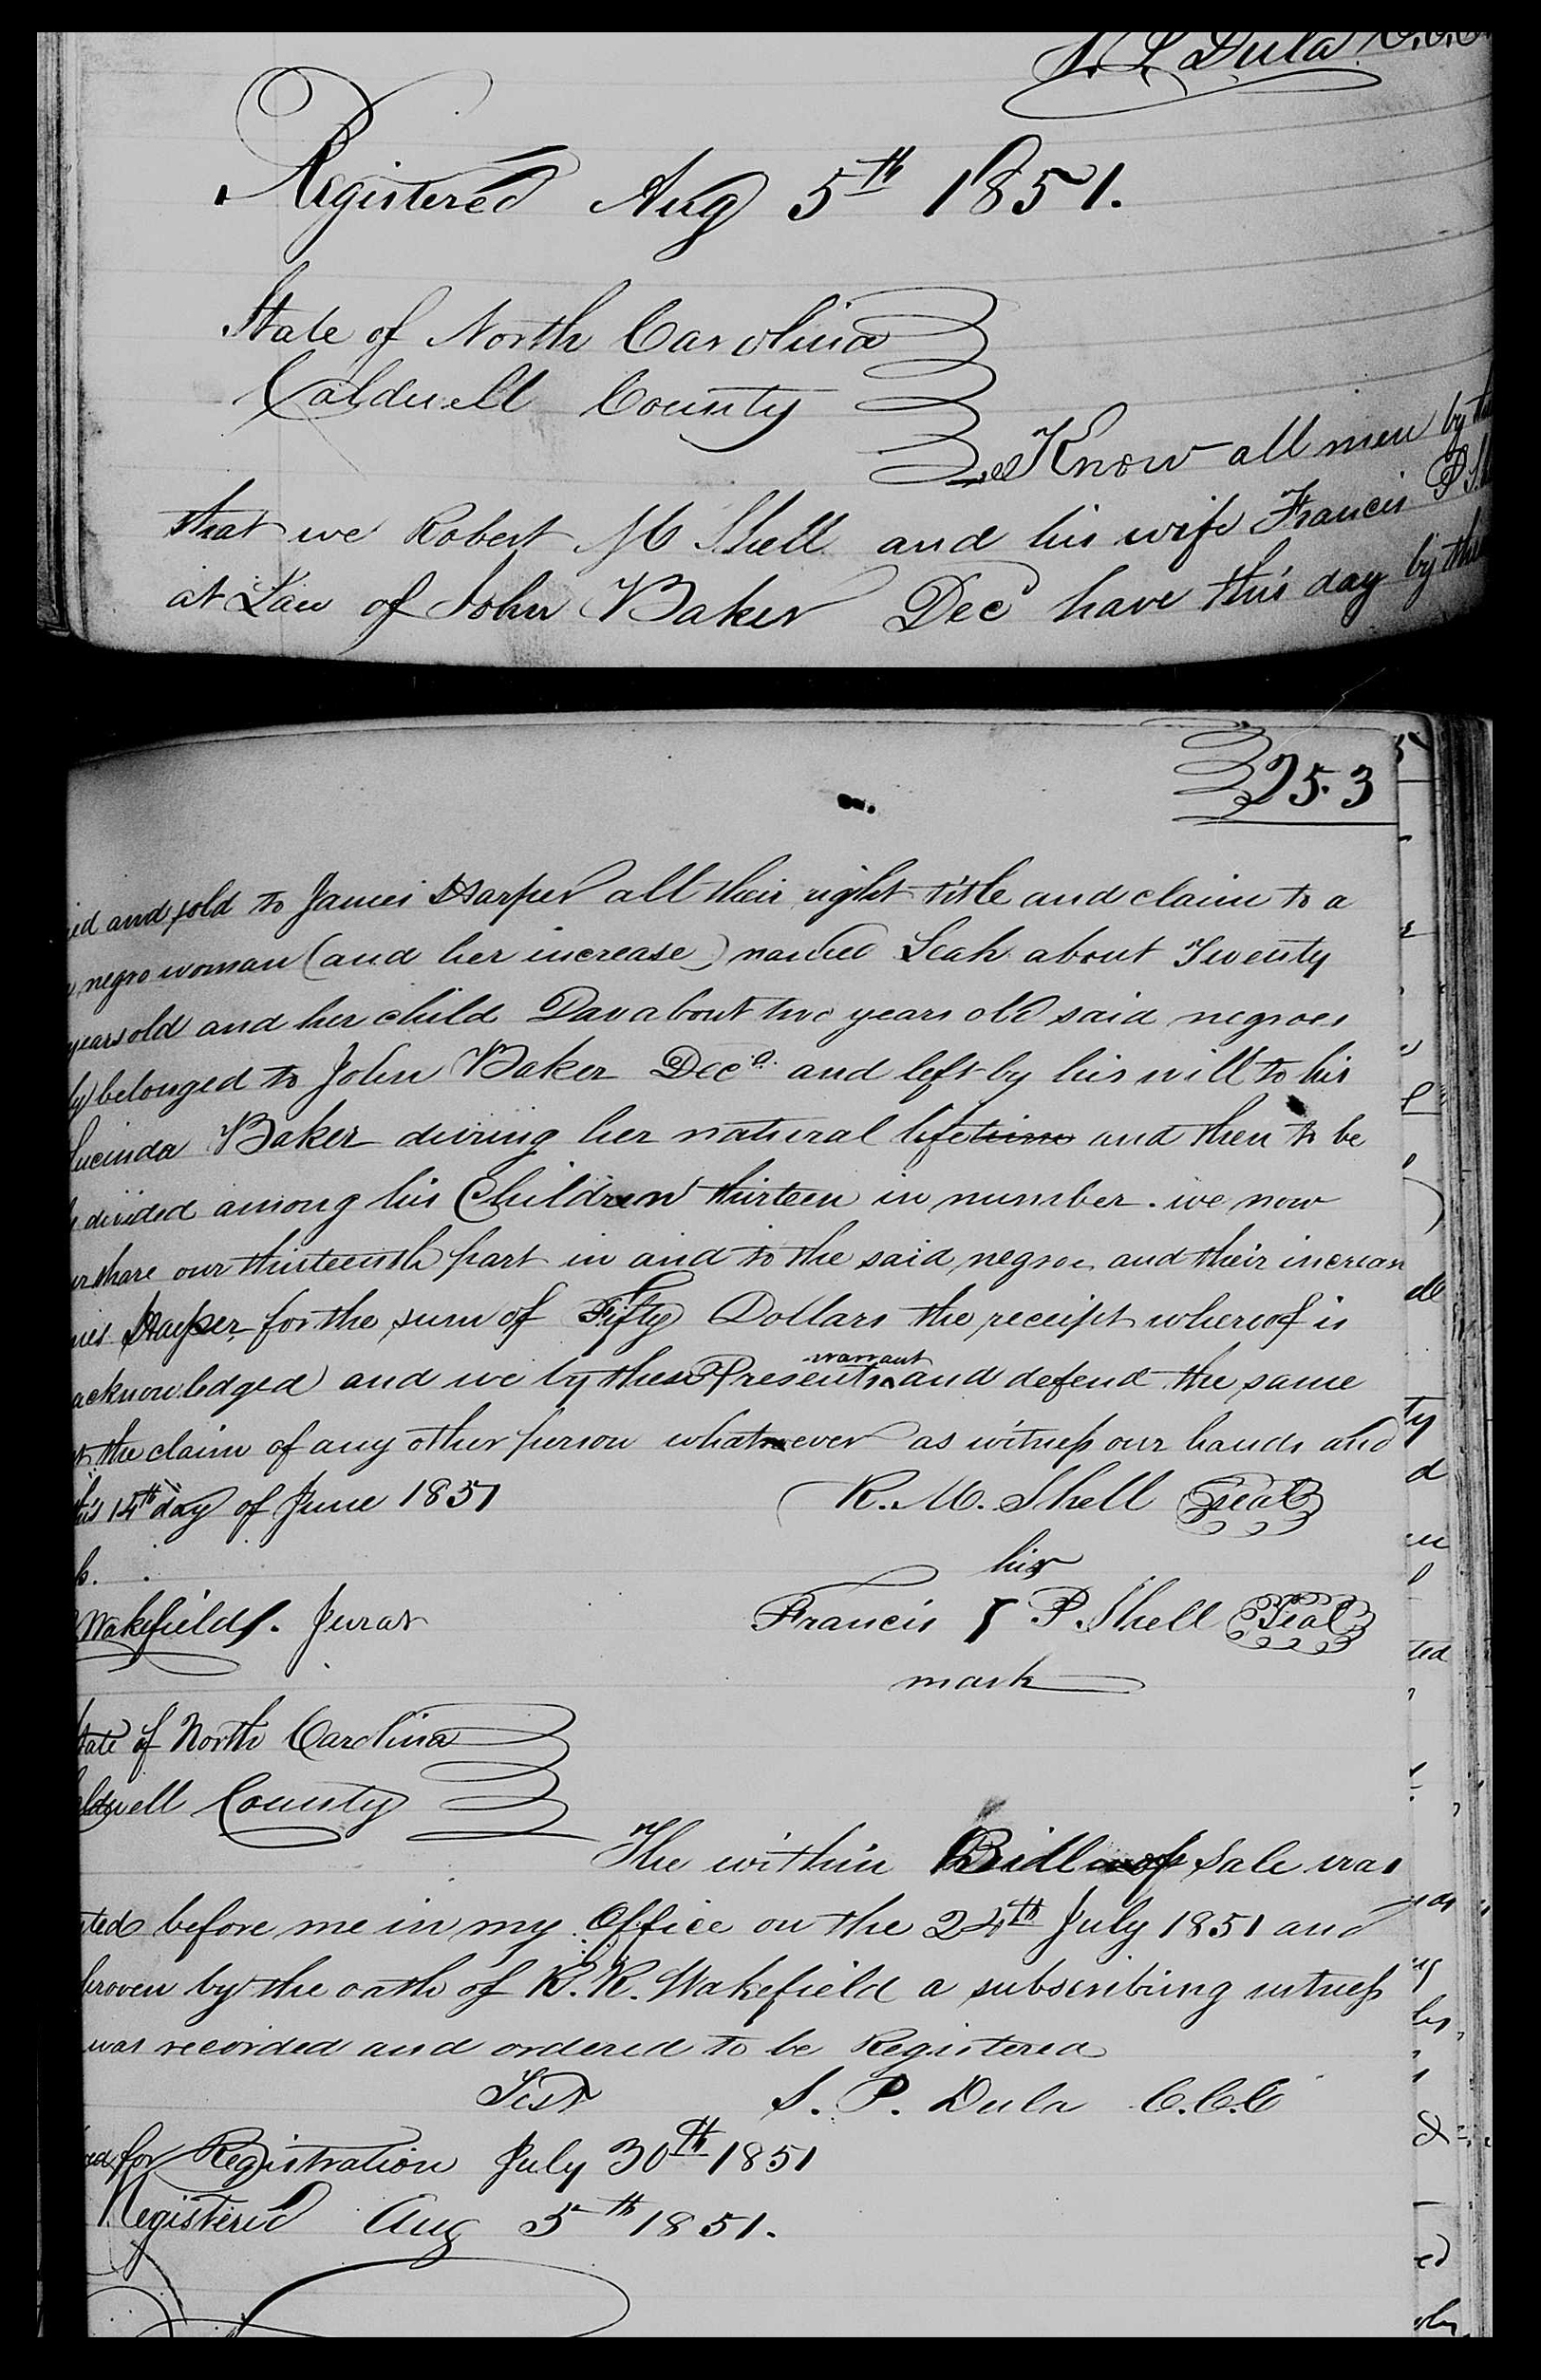 S. P. Dula C.C.C.
Registered Aug 5th 1851.
State of North Carolina
Caldwell County
Know all men by the
that we Robert M Shell and his wife Francis P Sh
at Law of John Baker Decd have this day by the
ed and sold to James Harper all their right title and claim to a
negro woman (and her increase) named Leah about Twenty
years old and her child Dav about two years old said negroes
ly belonged to John Baker Decd. and left by his will to his
Lucinda Baker during her natural lifetime and then to be
divided among his Children thirteen in number. we now
ur share our thirteenth part in and to the said negroe and their increase
mes Harper for the sum of Fifty Dollars the receipt whereof is
acknowledged and we by these Presents warrant and defend the same
the claim of any other person whatsoever as witness our hands and
this 14th day of June 1851 R. M. Shell Seal
his
Wakefield. Jurat Francis P. Shell Seal
mark
State of North Carolina
Caldwell County
The within Bill of Sale was
ted before me in my Office on the 24th July 1851 and
proven by the oath of R. R. Wakefield a subscribing witness
was recorded and ordered to be Registered
Test S. P. Dula C.C.C
ed for Registration July 30th 1851
Registered Aug 5th 1851.
253